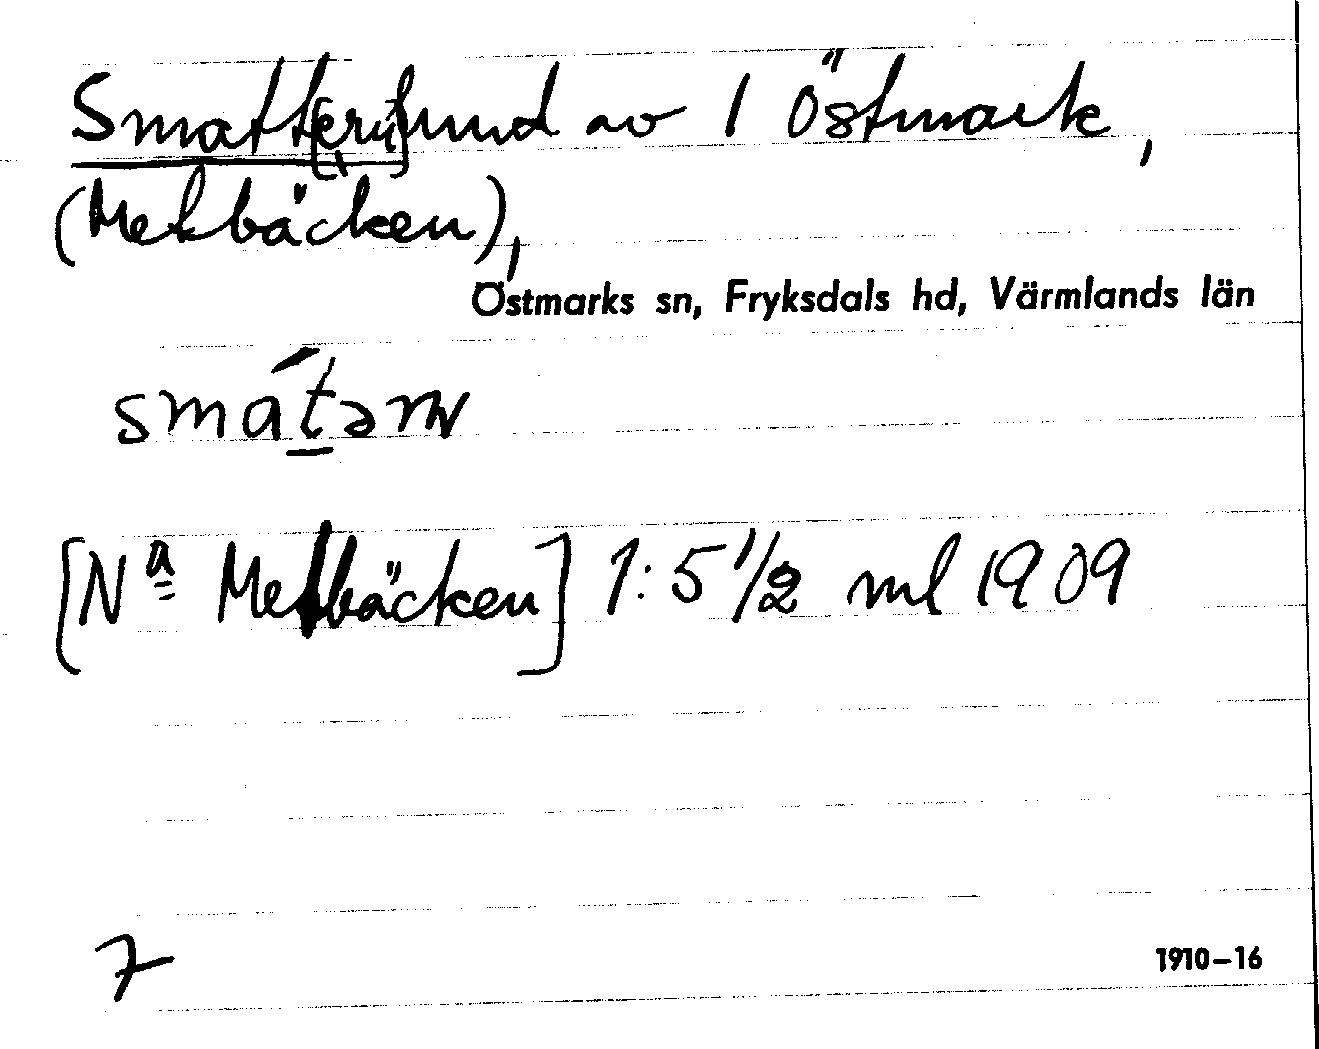 Smatt[eru]und av 1 Östmark,
(Mekbäcken),
Östmarks sn, Fryksdals hd, Värmlands län
smát̲ərn
[Nª Mekbäcken] 1:5 1/2 ml 1909
7
1910–16